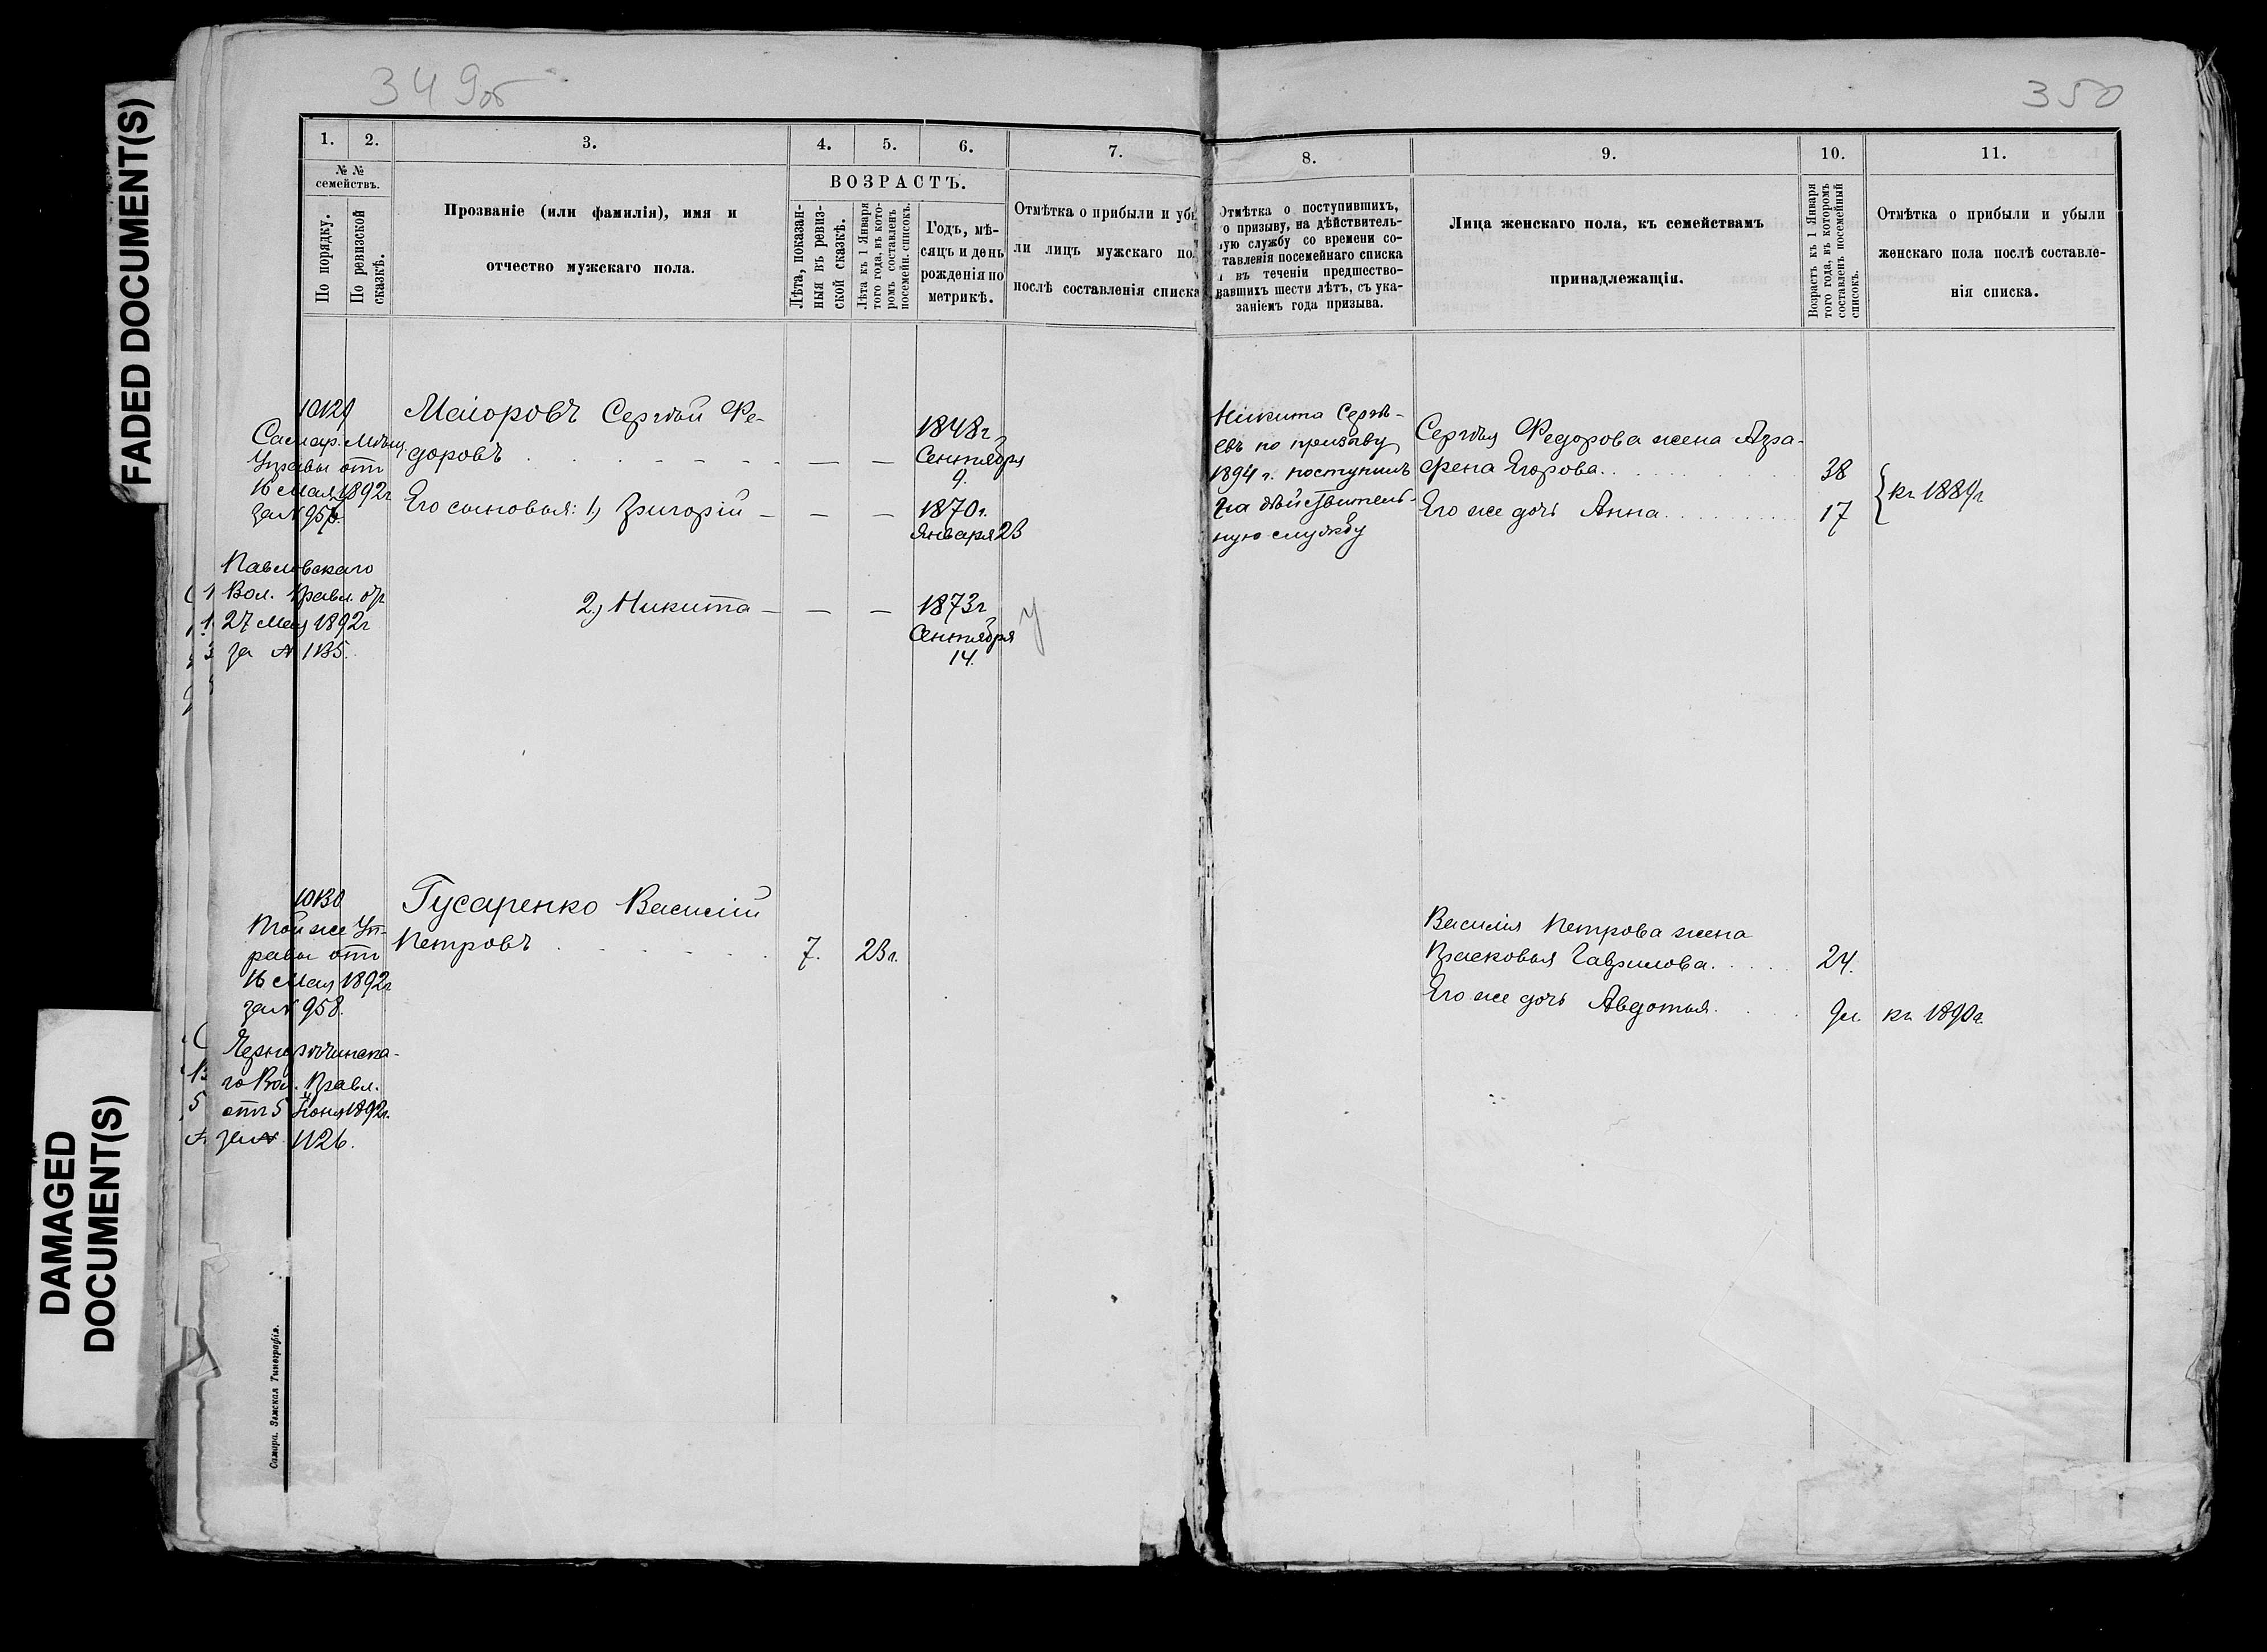 FADED DOCUMENT(S)
DAMAGED
DOCUMENT(S)
349об
1.
2.
3.
4.
5.
6.
7.
№ №
семействъ.
По порядку.
По ревизской
сказкѣ.
Прозваніе (или фамилія), имя и
отчество мужскаго пола.
ВОЗРАСТЪ.
Лѣта, показан-
ныя въ ревиз-
ской сказкѣ.
Лѣта къ 1 Января
того года, въ кото-
ромъ составленъ
посемейн. списокъ.
Годъ, мѣ-
сяцъ и день
рожденія по
метрикѣ.
Отмѣтка о прибыли и убы
ли лицъ мужскаго по
послѣ составленія списка
1029
Самар. Мѣщ.
Управы отъ
16 Мая 1892г
за № 957.
Павловскаго
Вол. Правл. отъ
27 Мая 1892г
за № 1135.
Маіоровъ Сергѣй Фе-
доровъ
1848г
Сентября
9.
Его сыновья: 1) Григорій
1870г.
Января 23
2) Никита
1873г
Сентября
14.
1030
Той же Уп-
равы отъ
16 Мая 1892г
за № 958.
го Вол. Правл.
отъ 5 Іюня 1892г.
за № 1126.
Гусаренко Василій
Петровъ
7.
23г.
Самара. Земская Типографія.
350
8.
9.
10.
11.
Отмѣтка о поступившихъ,
о призыву, на дѣйствитель-
ную службу со времени со-
тавленія посемейнаго списка
и въ теченіи предшество-
вавшихъ шести лѣтъ, съ ука-
заніемъ года призыва.
Лица женскаго пола, къ семействамъ
принадлежащія.
Возрастъ къ 1 Января
того года, въ которомъ
составленъ посемейный
списокъ.
Отмѣтка о прибыли и убыли
женскаго пола послѣ составле-
нія списка.
Никита Сергѣ-
евъ по призыву
1894 г. поступилъ
на дѣйствитель-
ную службу
Сергѣя Федорова жена Агра-
фена Егорова
38
Его же дочь Анна
17
къ 1889г
Василія Петрова жена
Прасковья Гаврилова
24.
Его же дочь Авдотья
9м.
къ 1890г.